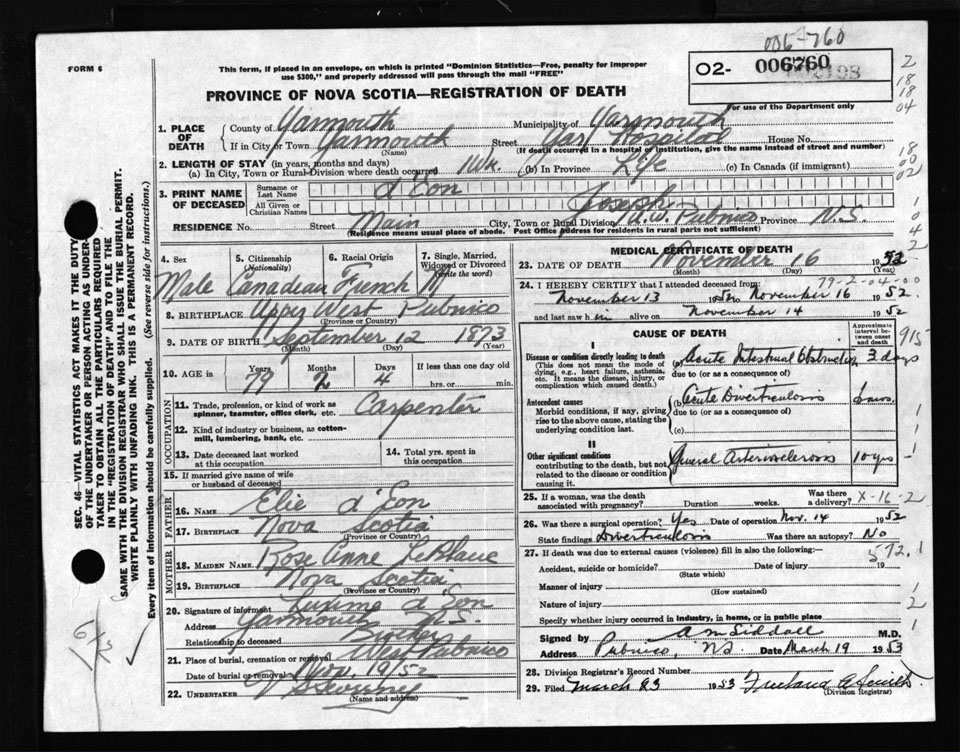 006-760
FORM 6
This form, if placed in an envelope, on which is printed "Dominion Statistics—Free, penalty for improper
use $300," and properly addressed will pass through the mail "FREE"
02- 006760
For use of the Department only
PROVINCE OF NOVA SCOTIA—REGISTRATION OF DEATH
1. PLACE OF DEATH County of Yarmouth Municipality of Yarmouth
If in City or Town Yarmouth (Name) Street Yar Hospital House No.
(If death occurred in a hospital or institution, give the name instead of street and number)
2. LENGTH OF STAY (in years, months and days)
(a) In City, Town or Rural Division where death occurred 1 Wk. (b) In Province Life (c) In Canada (if immigrant)
3. PRINT NAME OF DECEASED Surname or Last Name d'Eon
All Given or Christian Names Joseph
RESIDENCE No. Street Main City, Town or Rural Division W. Pubnico Province N.S.
(Residence means usual place of abode. Post Office address for residents in rural parts not sufficient)
4. Sex 5. Citizenship (Nationality) 6. Racial Origin 7. Single, Married, Widowed or Divorced (write the word)
Male Canadian French M
8. BIRTHPLACE Upper West Pubnico
(Province or Country)
9. DATE OF BIRTH September 12 1873
(Month) (Day) (Year)
10. AGE in Years Months Days If less than one day
79 2 4 hrs. or min.
OCCUPATION
11. Trade, profession, or kind of work as spinner, teamster, office clerk, etc. Carpenter
12. Kind of industry or business, as cotton-mill, lumbering, bank, etc.
13. Date deceased last worked at this occupation
14. Total yrs. spent in this occupation
15. If married give name of wife or husband of deceased
FATHER
16. Name Elie d'Eon
17. Birthplace Nova Scotia
(Province or Country)
MOTHER
18. MAIDEN NAME Rose Anne LeBlanc
19. BIRTHPLACE Nova Scotia
(Province or Country)
20. Signature of informant d'Eon
Address Yarmouth N.S.
Relationship to deceased Brother
21. Place of burial, cremation or removal West Pubnico
Date of burial or removal Nov. 1952
22. UNDERTAKER Sweeny
(Name and address)
MEDICAL CERTIFICATE OF DEATH
23. DATE OF DEATH November 16 1952
(Month) (Day) (Year)
79-2-04-00
24. I HEREBY CERTIFY that I attended deceased from:
November 13 1952 to November 16 1952
and last saw him alive on November 14 1952
CAUSE OF DEATH
Approximate interval between onset and death
915
I
Disease or condition directly leading to death
(This does not mean the mode of dying, e.g., heart failure, asthenia, etc. It means the disease, injury, or complication which caused death.)
(a) Acute Intestinal Obstruction 3 days
due to (or as a consequence of)
Antecedent causes
Morbid conditions, if any, giving rise to the above cause, stating the underlying condition last.
(b) Acute Diverticulosis
due to (or as a consequence of)
(c)
II
Other significant conditions
contributing to the death, but not related to the disease or condition causing it.
General Arteriosclerosis 10 yrs
25. If a woman, was the death associated with pregnancy? Duration weeks. Was there a delivery? X-16-2
26. Was there a surgical operation? Yes Date of operation Nov. 14 1952
State findings Diverticulosis Was there an autopsy? No
572.1
27. If death was due to external causes (violence) fill in also the following:—
Accident, suicide or homicide? Date of injury 19
(State which)
Manner of injury
(How sustained)
Nature of injury
Specify whether injury occurred in industry, in home, or in public place
Signed by A M Siddall M.D.
Address Pubnico, NS Date March 19 1953
28. Division Registrar's Record Number
29. Filed March 23 1953 Freeland A Smith
(Division Registrar)
SEC. 46—VITAL STATISTICS ACT MAKES IT THE DUTY
OF THE UNDERTAKER OR PERSON ACTING AS UNDER-
TAKER TO OBTAIN ALL THE PARTICULARS REQUIRED
IN THE "REGISTRATION OF DEATH" AND TO FILE THE
SAME WITH THE DIVISION REGISTRAR WHO SHALL ISSUE THE BURIAL PERMIT.
WRITE PLAINLY WITH UNFADING INK. THIS IS A PERMANENT RECORD.
Every item of information should be carefully supplied. (See reverse side for instructions.)
2
18
18
04
18
00
02
1
0
4
2